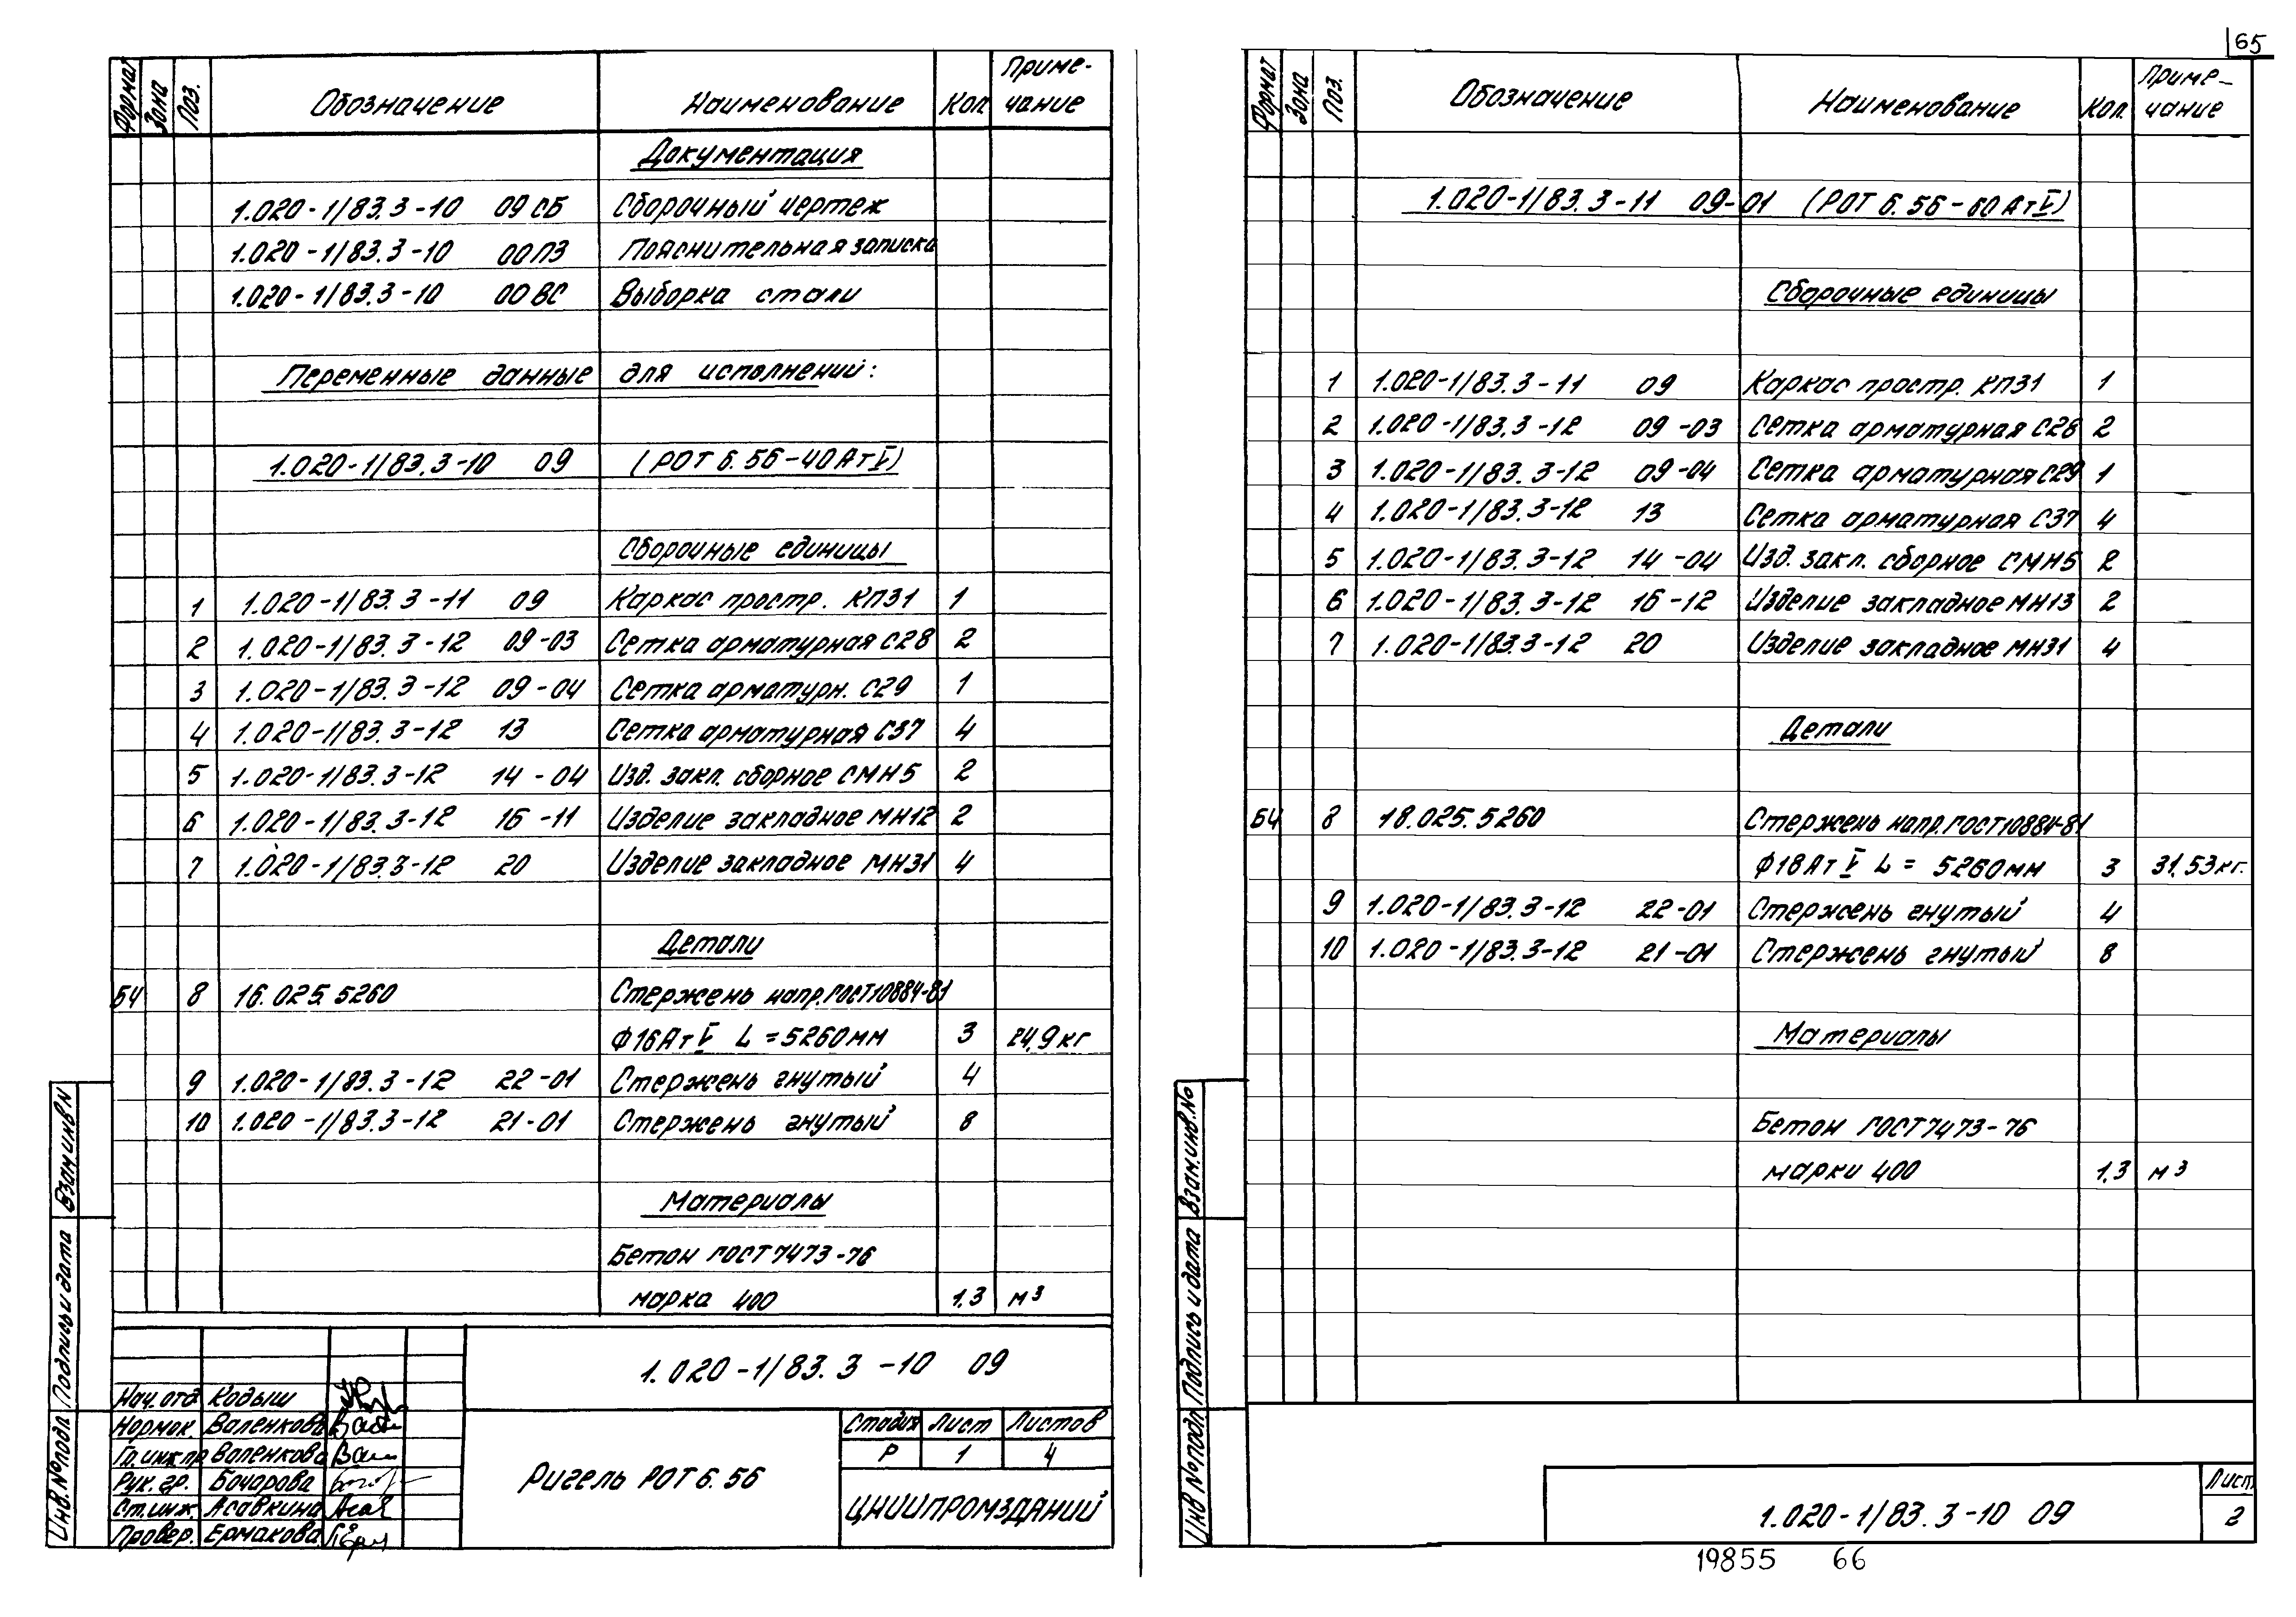 65
Формат Зона Поз. Обозначение Наименование Кол. Приме-
чание
Документация
1.020-1/83.3-10 09 СБ Сборочный чертеж
1.020-1/83.3-10 00 ПЗ Пояснительная записка
1.020-1/83.3-10 00 ВС Выборка стали
Переменные данные для исполнений:
1.020-1/83.3-10 09 (РОТ 6.56-40 АтV)
Сборочные единицы
1 1.020-1/83.3-11 09 Каркас простр. КП31 1
2 1.020-1/83.3-12 09-03 Сетка арматурная С28 2
3 1.020-1/83.3-12 09-04 Сетка арматурн. С29 1
4 1.020-1/83.3-12 13 Сетка арматурная С37 4
5 1.020-1/83.3-12 14-04 Изд. закл. сборное СМН5 2
6 1.020-1/83.3-12 16-11 Изделие закладное МН12 2
7 1.020-1/83.3-12 20 Изделие закладное МН31 4
Детали
БЧ 8 16.025.5260 Стержень напр. ГОСТ 10884-81
Ф16АтV L=5260мм 3 24,9 кг
9 1.020-1/83.3-12 22-01 Стержень гнутый 4
10 1.020-1/83.3-12 21-01 Стержень гнутый 8
Материалы
Бетон ГОСТ 7473-76
марка 400 1,3 м³
1.020-1/83.3-10 09
Нач. отд Кодыш
Нормок. Валенкова
Гл. инж. пр Валенкова
Рук. гр. Бочарова
Ст. инж. Асавкина
Провер. Ермакова
Ригель РОТ 6.56
Стадия Лист Листов
Р 1 4
ЦНИИПРОМЗДАНИЙ
Инв. № подл. Подпись и дата Взам. инв. N
Формат Зона Поз. Обозначение Наименование Кол. Приме-
чание
1.020-1/83.3-11 09-01 (РОТ 6.56-60 АтV)
Сборочные единицы
1 1.020-1/83.3-11 09 Каркас простр. КП31 1
2 1.020-1/83.3-12 09-03 Сетка арматурная С28 2
3 1.020-1/83.3-12 09-04 Сетка арматурная С29 1
4 1.020-1/83.3-12 13 Сетка арматурная С37 4
5 1.020-1/83.3-12 14-04 Изд. закл. сборное СМН5 2
6 1.020-1/83.3-12 16-12 Изделие закладное МН13 2
7 1.020-1/83.3-12 20 Изделие закладное МН31 4
Детали
БЧ 8 18.025.5260 Стержень напр. ГОСТ 10884-81
Ф18АтV L = 5260мм 3 31,53 кг.
9 1.020-1/83.3-12 22-01 Стержень гнутый 4
10 1.020-1/83.3-12 21-01 Стержень гнутый 8
Материалы
Бетон ГОСТ 7473-76
марки 400 1,3 м³
Инв № подл. Подпись и дата Взам. инв. №
1.020-1/83.3-10 09
Лист
2
19855 66